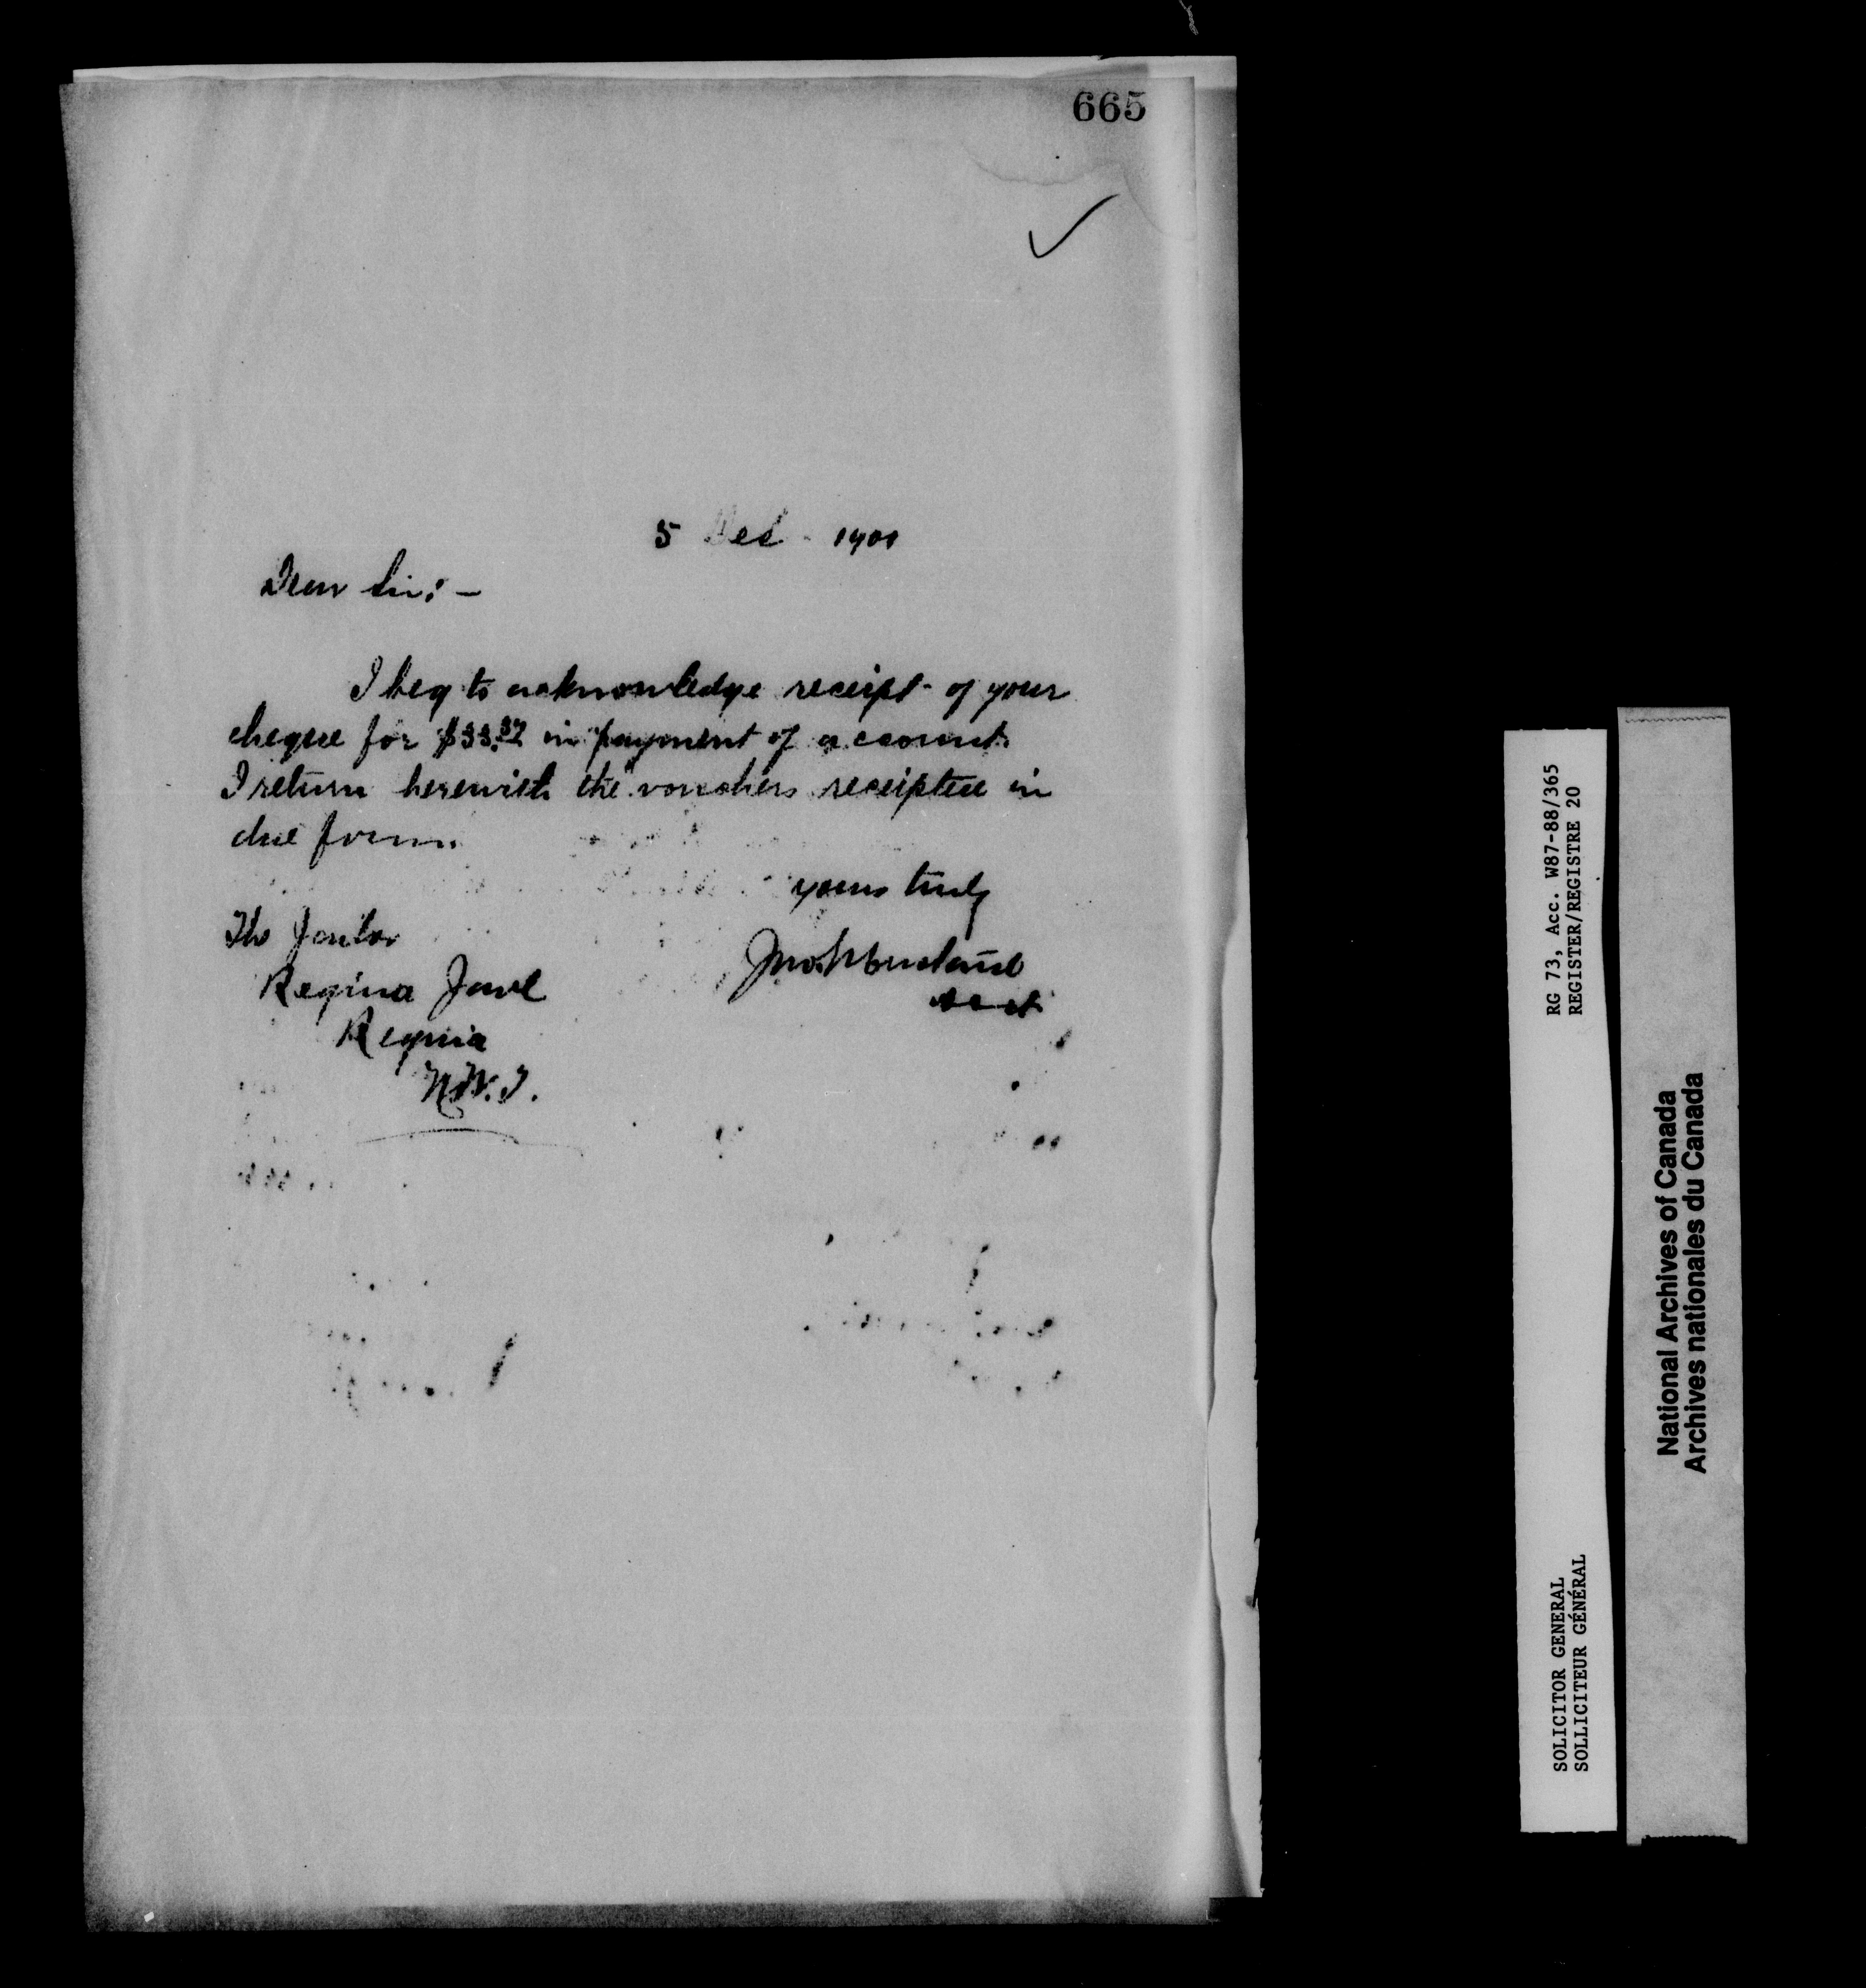 665
5 Dec - 1901
Dear Sir: -
I beg to acknowledge receipt of your
cheque for $33.37 in payment of account.
I return herewith the vouchers receipted in
due form.
yours truly
The Jailor
Regina Jail
Regina
N.W.T.
Acct
RG 73, Acc. W87-88/365
REGISTER/REGISTRE 20
SOLICITOR GENERAL
SOLLICITEUR GÉNÉRAL
National Archives of Canada
Archives nationales du Canada